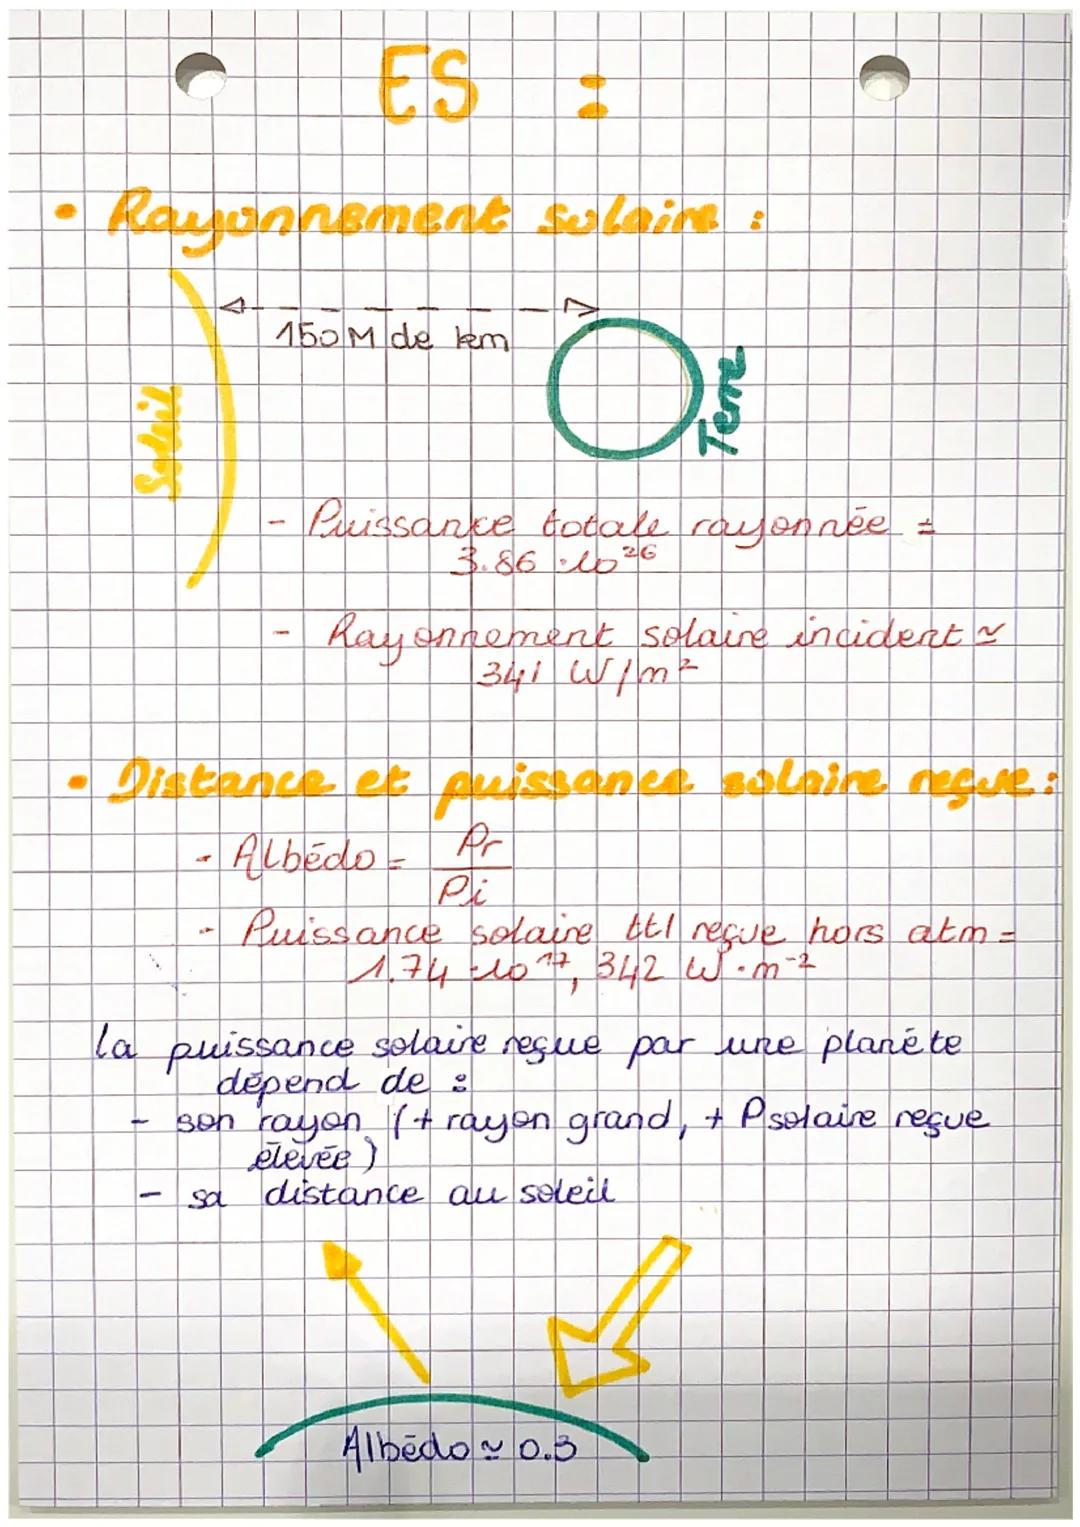 ES :
• Rayonnement solaire :
150 M de km
Soleil
Terre
- Puissance totale rayonnée =
3.86 · 10²⁶
- Rayonnement solaire incident ≃
341 W/m²
• Distance et puissance solaire reçue :
- Albédo = Pr
Pi
- Puissance solaire ttl reçue hors atm =
1.74 · 10¹⁷, 342 W · m⁻²
la puissance solaire reçue par une planète
dépend de :
- son rayon (+ rayon grand, + Psolaire reçue
élevée)
- sa distance au soleil
Albédo ≃ 0.3